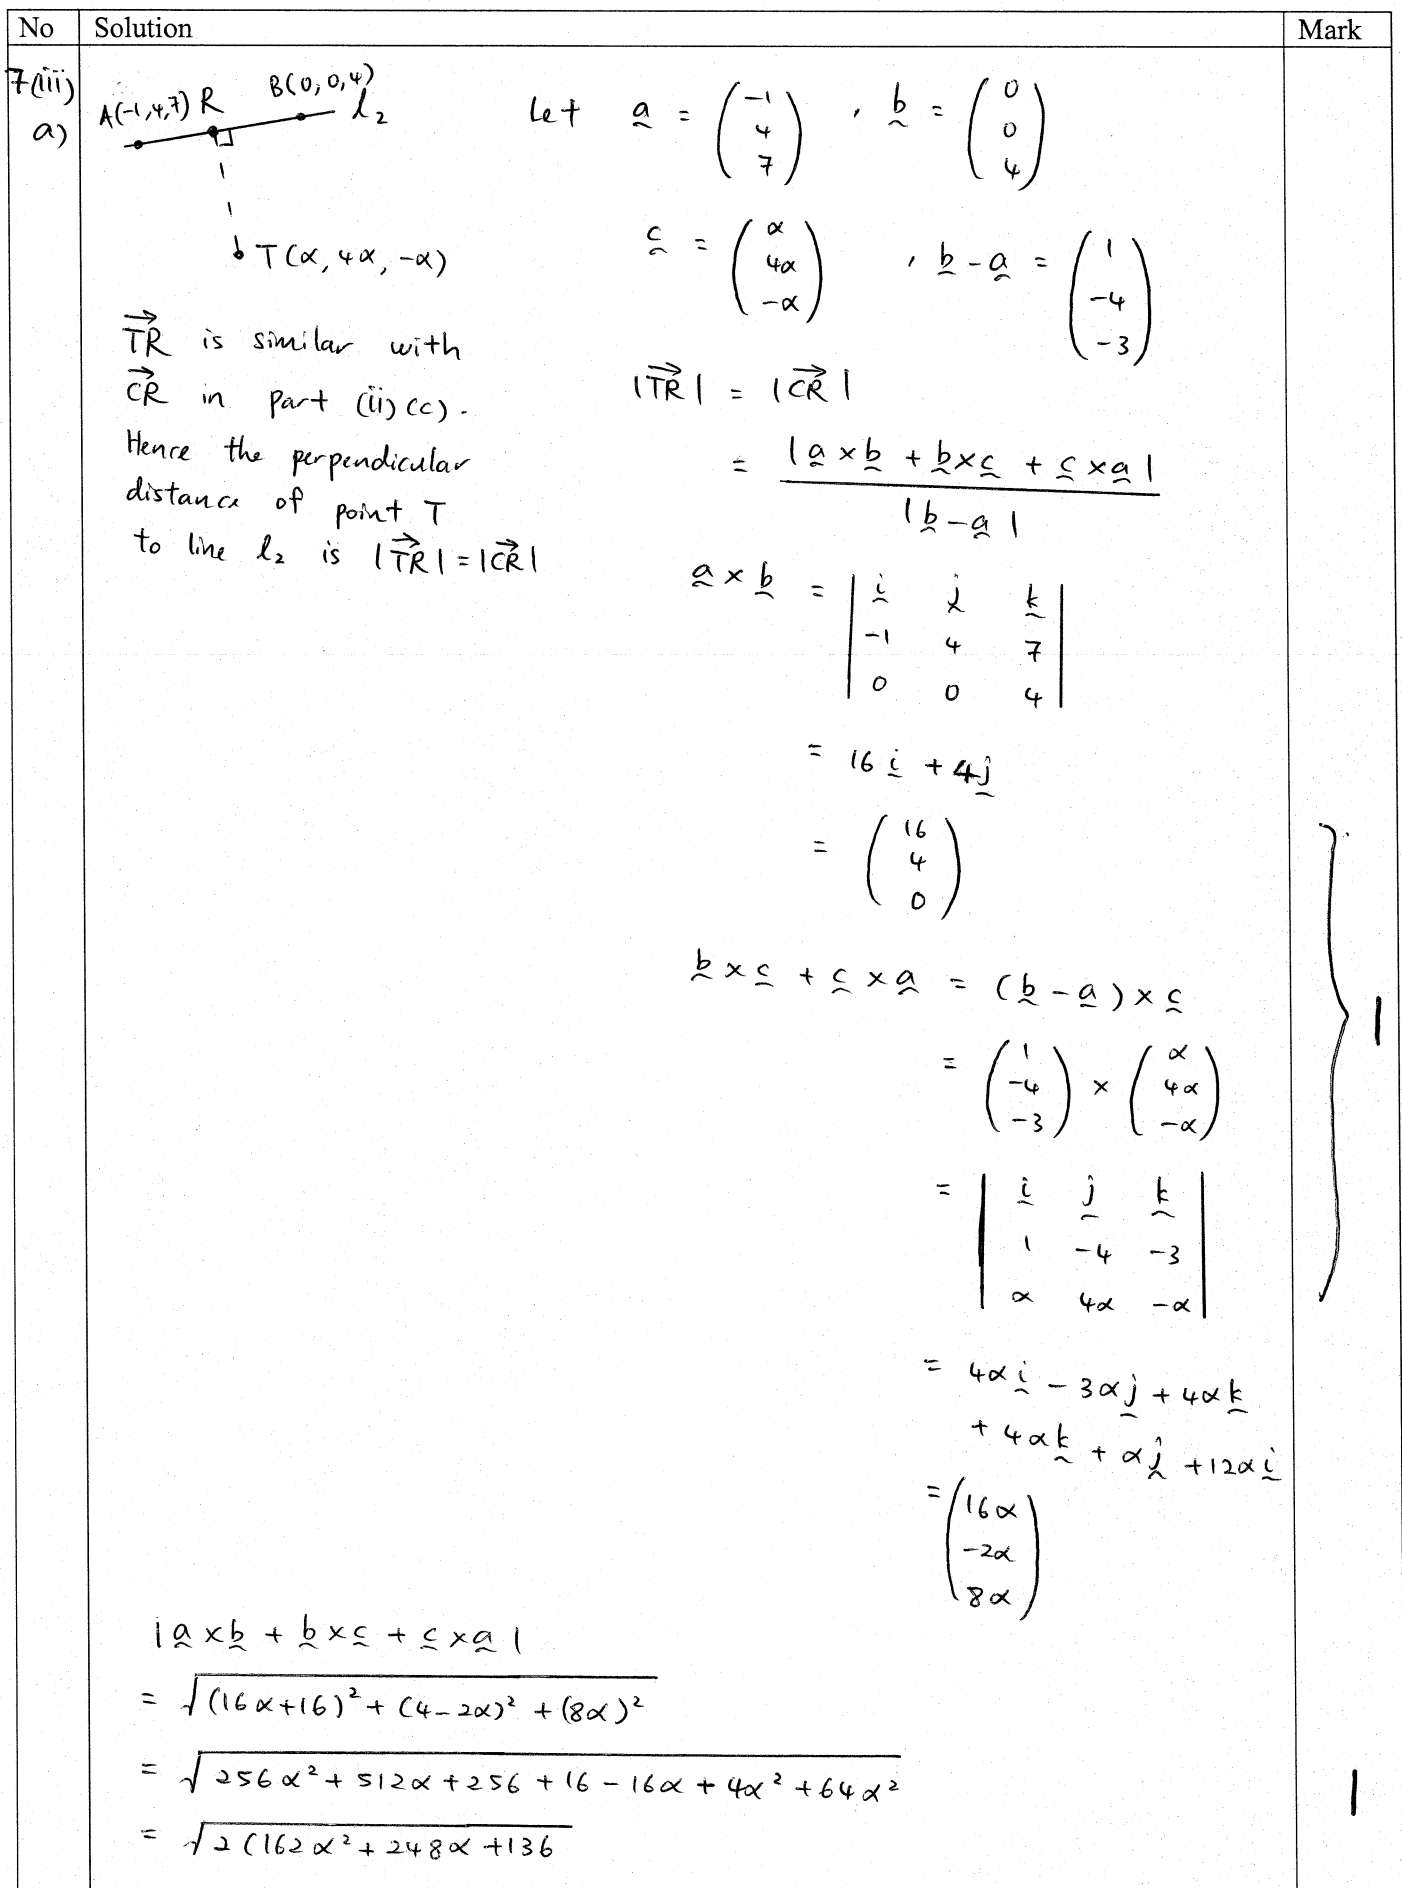 No Solution Mark
7(iii)
a)
A(-1,4,7) R B(0,0,4) l₂
T(α, 4α, -α)
Let a = (-1 4 7) , b = (0 0 4)
c = (α 4α -α) , b - a = (1 -4 -3)
TR is similar with
CR in part (ii)(c).
Hence the perpendicular
distance of point T
to line l₂ is |TR| = |CR|
|TR| = |CR|
= |a × b + b × c + c × a| / |b - a|
a × b = | i j k
-1 4 7
0 0 4 |
= 16 i + 4 j
= (16 4 0)
b × c + c × a = (b - a) × c
= (1 -4 -3) × (α 4α -α)
= | i j k
1 -4 -3
α 4α -α |
1
= 4α i - 3α j + 4α k
+ 4α k + α j + 12α i
= (16α -2α 8α)
|a × b + b × c + c × a|
= √(16α+16)² + (4-2α)² + (8α)²
= √256α² + 512α + 256 + 16 - 16α + 4α² + 64α²
1
= √2(162α² + 248α + 136